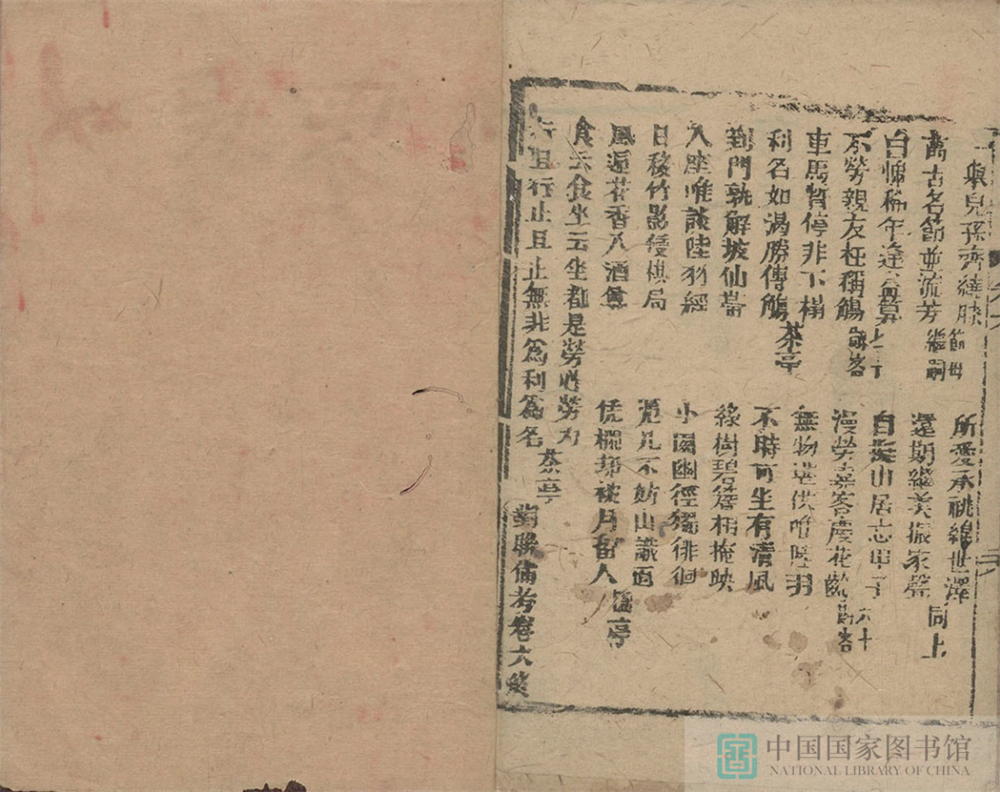 與兒孫齊 節母 所愛承祧綿世澤
萬古名節並流芳 繼嗣 還期繼美振家聲 同上
白 稀年逢 算 七十 自 山居志甲子 六十
不勞親友枉稱觴 辭客 漫勞嘉客慶花齡 辭客
車馬暫停非下榻 無物 供唯陸羽
利名如渴勝傳觴 茶亭 不時可坐有清風
到門孰解坡仙帶 綠樹碧簷相掩映
入座唯談陸羽經 小園幽徑獨徘徊
日移竹影侵棋局 凭几不妨山識面
風遞花香入酒樽 凭欄 被月留人 亭
食云食坐云坐都是勞心勞力
行且行止且止無非為利為名 茶亭
對聯備考卷六終
中国国家图书馆
NATIONAL LIBRARY OF CHINA